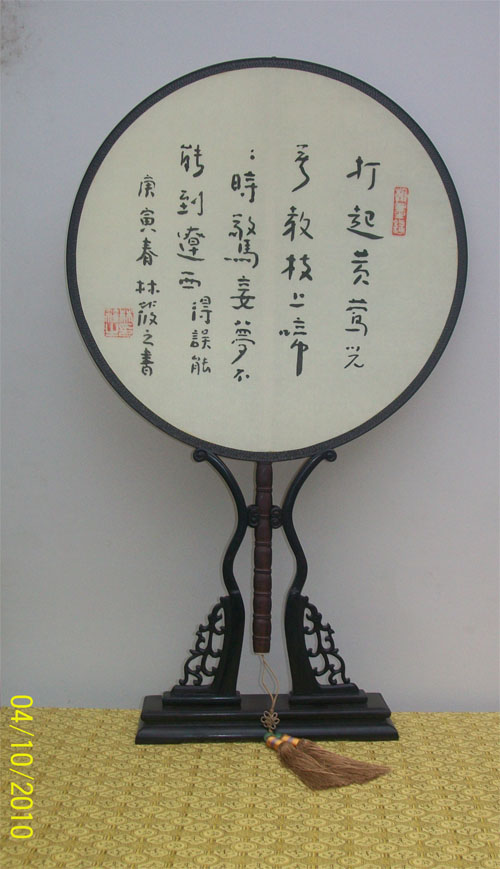 打起黄莺兒
莫教枝上啼
：時驚妾夢不
能到遼西 得誤能
庚寅春 林筱之書
04/10/2010